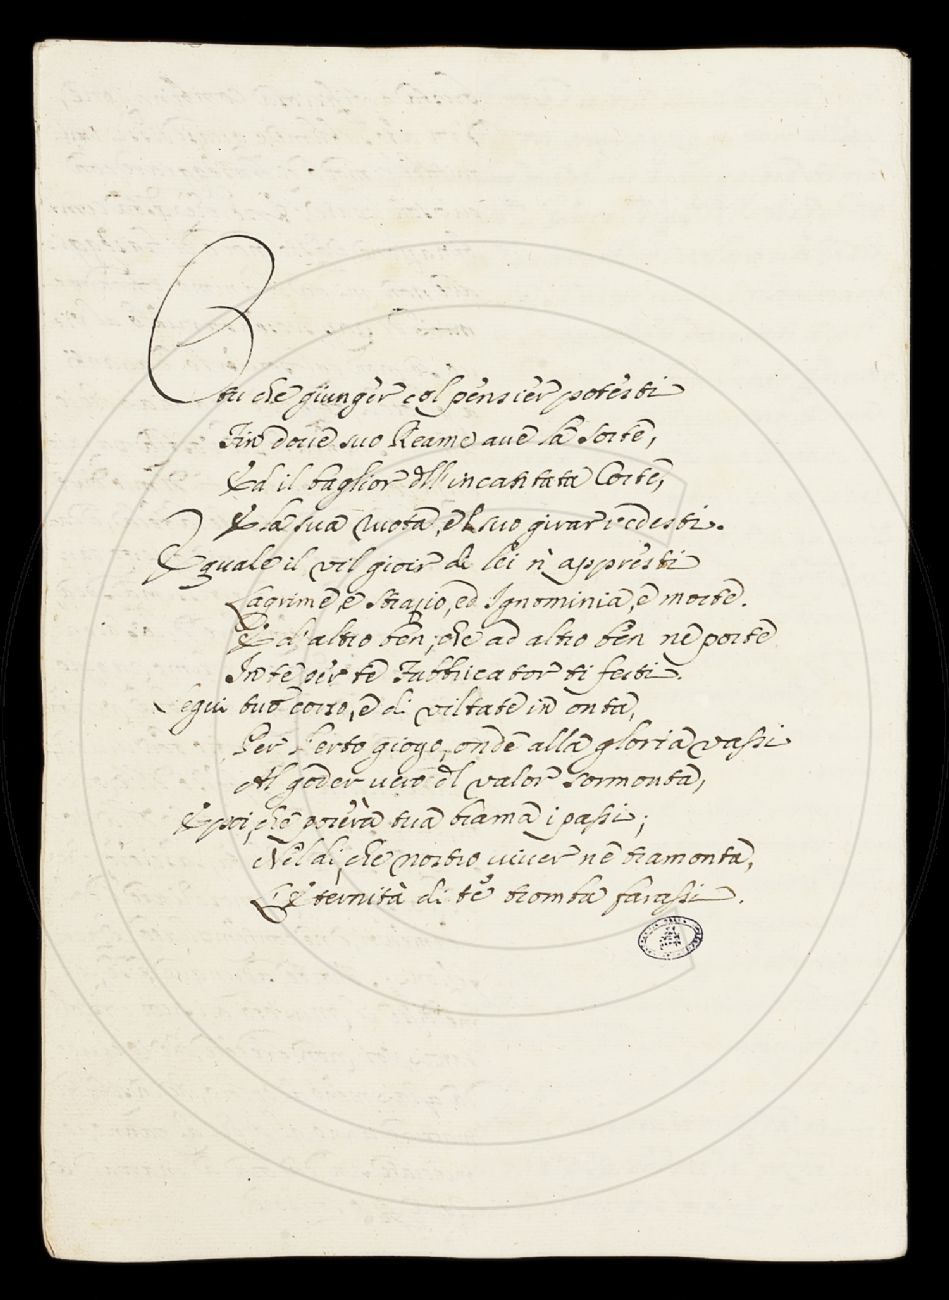 O tu che giunger col pensier potesti
Fin dove suo Reame ave la sorte,
Ed il baglior dell'incantata Corte,
E la sua ruota, e'l suo girar vedesti.
E quale il vil gioir di lei n'appresti
Lagrime, e Strazio, ed Ignominia, e morte.
E d'altro ben, che ad altro ben ne porte
In te per te Fabbricator ti festi.
Segui tuo corso, e di viltate in onta,
Per l'erto giogo, onde alla gloria vassi
Al goder vero del valor sormonta,
E poi, che poserà tua brama i passi;
Nel dì, che nostro viver ne tramonta,
L'Eternità di te tromba farassi.